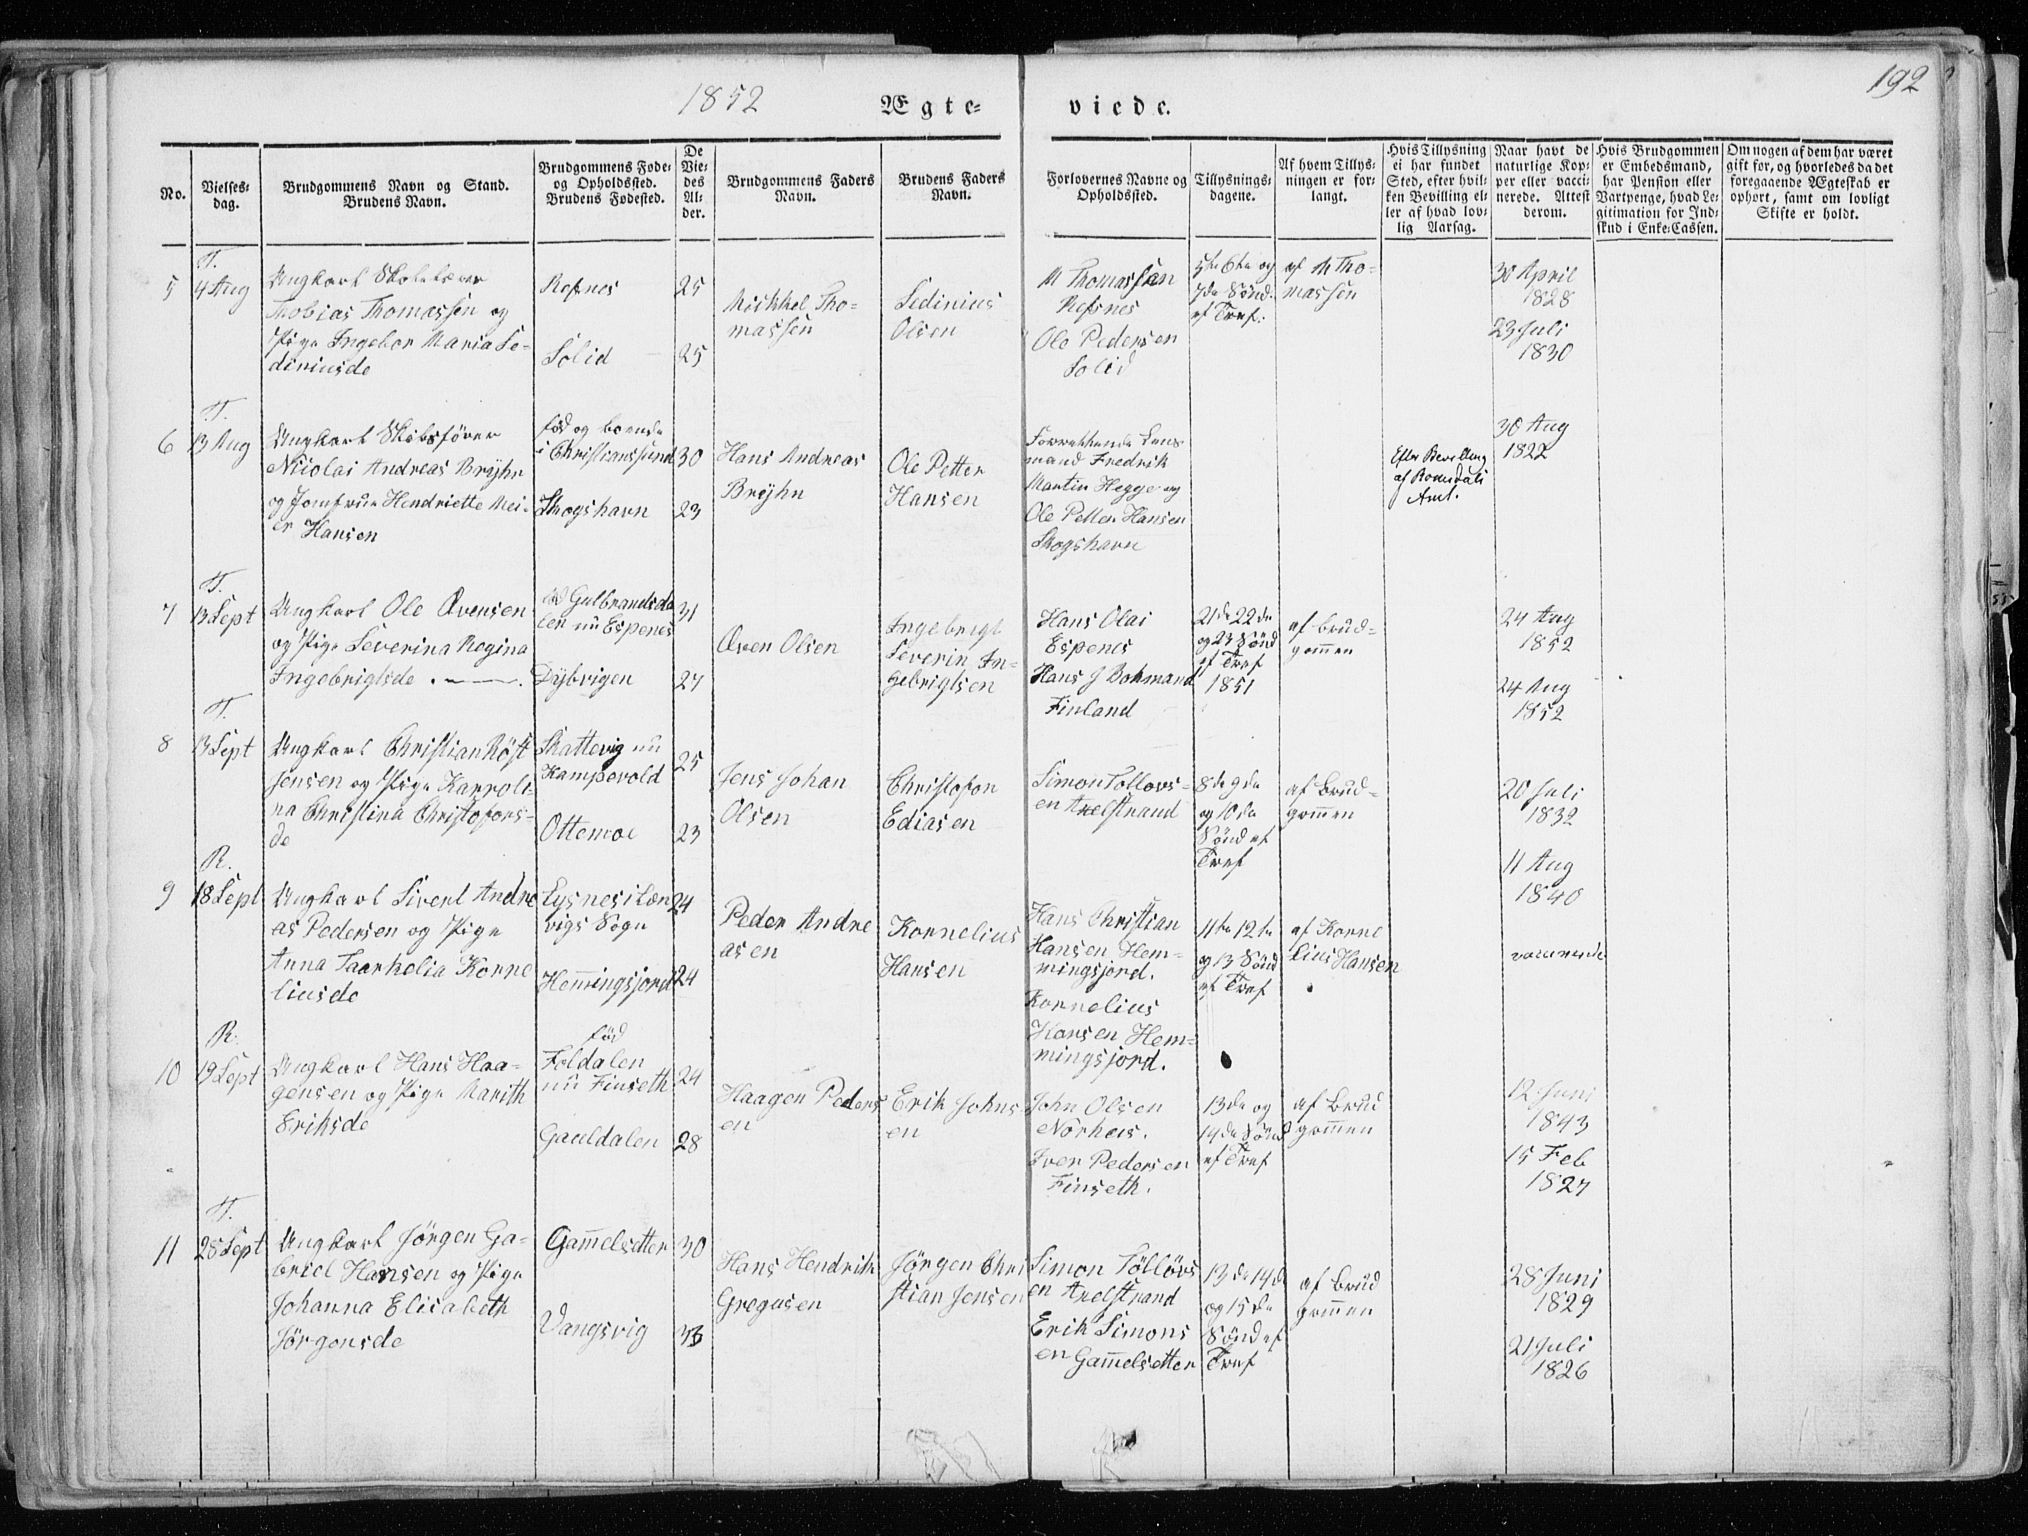 1852
Ægte-
viede.
192
No.
Vielses-
dag.
Brudgommens Navn og Stand.
Brudens Navn.
Brudgommens Føde-
og Opholdssted.
Brudens Fødested.
De
Vie-
des
Al-
der.
Brudgommens Faders
Navn.
Brudens Faders
Navn.
Forlovernes Navne og
Opholdssted.
Tillysnings-
dagene.
Af hvem Tillys-
ningen er for-
langt.
Hvis Tillysning
ei har fundet
Sted, efter hvil-
ken Bevilling el-
ler af hvad lov-
lig Aarsag.
Naar havt de
naturlige Kop-
per eller vacci-
nerede. Attest
derom.
Hvis Brudgommen
er Embedsmand,
har Pension eller
Vartpenge, hvad Le-
gitimation for Ind-
skud i Enke-Cassen.
Om nogen af dem har været
gift før, og hvorledes da det
foregaaende Ægteskab er
ophørt, samt om lovligt
Skifte er holdt.
T.
5
4 Aug
Ungkarl Skolelærer
Thobias Thomassen og
Pige Ingebor Maria Se-
diniusde
Refsnes
Solid
25
25
Mikkel Tho-
massen
Sedinius
Olsen
M Thomassen
Refsnes
Ole Pedersen
Solid
5te 6te og
7de Sønd:
ef Tref:
af M Tho-
massen
30 April
1828
23 Juli
1830
T.
6
13 Aug
Ungkarl Skibsfører
Nicolai Andreas Brÿhn
og Jomfrue Hendriette Mei-
er Hansen
fød og boende
i Christianssund
Skogshavn
30
23
Hans Andreas
Brÿhn
Ole Petter
Hansen
Forrettende Lens-
mand Fredrik
Martin Hegge og
Ole Petter Hansen
Skogshavn
Efter Bevilling
af Romsdals
Amt.
30 Aug
1822
T.
7
13 Sept
Ungkarl Ole Øvensen
og Pige Severina Regina
Ingebrigtsde
fød Gulbrandsda
len nu Espenes
Dÿbvigen
31
27
Øven Olsen
Ingebrigt
Severin In-
gebrigtsen
Hans Olai
Espenes
Hans J Bohmand
Finland
21de 22de
og 23 Sønd
ef Tref
1851
af brud-
gommen
24 Aug
1852
24 Aug
1852
T.
8
13 Sept
Ungkarl Christian Röst
Jensen og Pige Karroli-
na Christina Christofers-
de
Skattevig nu
Kampevold
Ottemoe
25
23
Jens Johan
Olsen
Christofer
Ediasen
Simon Tollovs-
en Axelstrand
8de 9de
og 10de
Sønd ef
Tref
af Brud-
gommen
20 Juli
1832
11 Aug
1840
R.
9
18 Sept
Ungkarl Sivert Andre
as Pedersen og Pige
Anna Korne
liusde
Lysnes i Len
vigs Sogn
Hemingsjord
24
24
Peder Andre
asen
Kornelius
Hansen
Hans Christian
Hansen Hem-
mingsjord.
Kornelius
Hansen Hem-
mingsjord.
11te 12te
og 13 Sønd
ef Tref
af Korne
lius Hansen
R.
10
19 Sept
Ungkarl Hans Haa-
gensen og Pige Marith
Eriksde
fød
Foldalen
nu Finseth
Gauldalen
24
28
Haagen Peders
en
Erik Johns
en
John Olsen
Nörhus.
Iver Pedersen
Finseth.
13de og
14de Sønd
ef Tref
af Brud
gommen
12 Juni
1843
15 Feb
1827
T.
11
28 Sept
Ungkarl Jörgen Ga-
briel Hansen og Pige
Johanna Elisabeth
Jörgensde
Gammelsetter
Vangsvig
30
33
Hans Hendrik
Gregusen
Jörgen Chri
stian Jensen
Simon Töllövs
en Axelstrand
Erik Simons
en Gammelsetter
13de 14de
og 15de
Sønd ef
Tref
af Brud
gommen
28 Juni
1829
21 Juli
1826